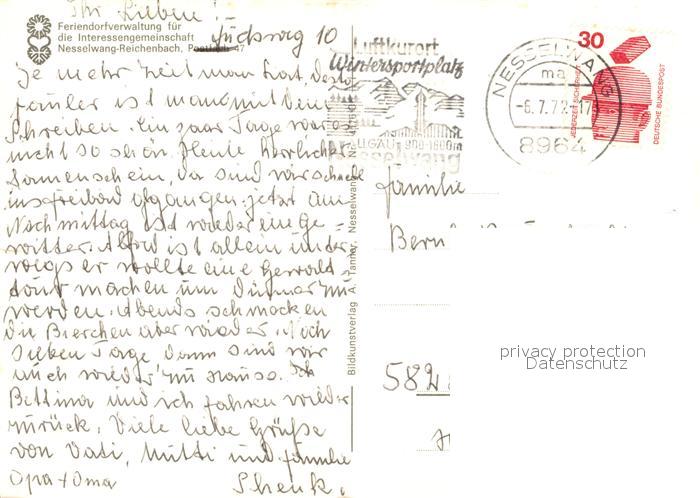 Ihr Lieben!
Feriendorfverwaltung für
die Interessengemeinschaft
Nesselwang-Reichenbach, Postfach 47
10
Je mehr Zeit man hat, desto
fauler ist man mit dem
Schreiben. Ein paar Tage war es
nicht so schön. Heute herrlicher
Sonnenschein, da sind wir schnell
ins Freibad gegangen. Jetzt am
Nachmittag ist wieder ein Ge-
witter. Alfred ist allein unter-
wegs er wollte eine Gewalts
tour machen um dünner zu
werden. Abends schmecken
die Bierchen aber wieder. Noch
sieben Tage dann sind wir
auch wieder zu Hause. Ich
Bettina und ich fahren wieder
zurück. Viele liebe Grüße
von Vati, Mutti und Familie
Opa + Oma Schenk.
Bildkunstverlag A. Tanner, Nesselwang
Luftkurort
Wintersportplatz
ALLGÄU 900-1600m
Nesselwang
NESSELWANG
ma
-6.7.72-17
8964
30
JEDERZEIT SICHERHEIT
DEUTSCHE BUNDESPOST
Familie
5821
privacy protection
Datenschutz